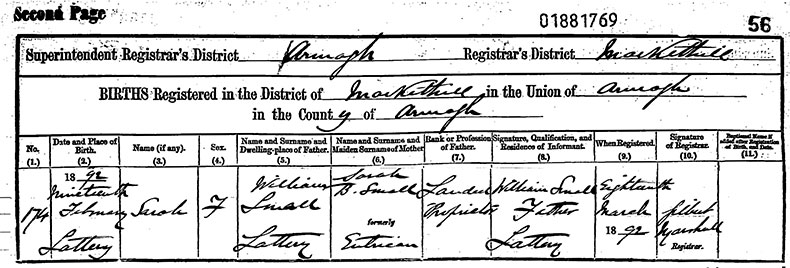 Second Page
01881769
56
Superintendent Registrar's District Armagh Registrar's District Markethill
BIRTHS Registered in the District of Markethill in the Union of Armagh
in the County of Armagh
No. (1.) Date and Place of Birth. (2.) Name (if any). (3.) Sex. (4.) Name and Surname and Dwelling-place of Father. (5.) Name and Surname and Maiden Surname of Mother (6.) Rank or Profession of Father. (7.) Signature, Qualification, and Residence of Informant. (8.) When Registered. (9.) Signature of Registrar. (10.) Baptismal Name if added after Registration of Birth, and Date. (11.)
174 1892 Nineteenth February Lattery
Sarah
F
William Small Lattery
Sarah D. Small formerly
Landed Proprietor
William Small Father Lattery
Eighteenth March 1892
Marshall Registrar.